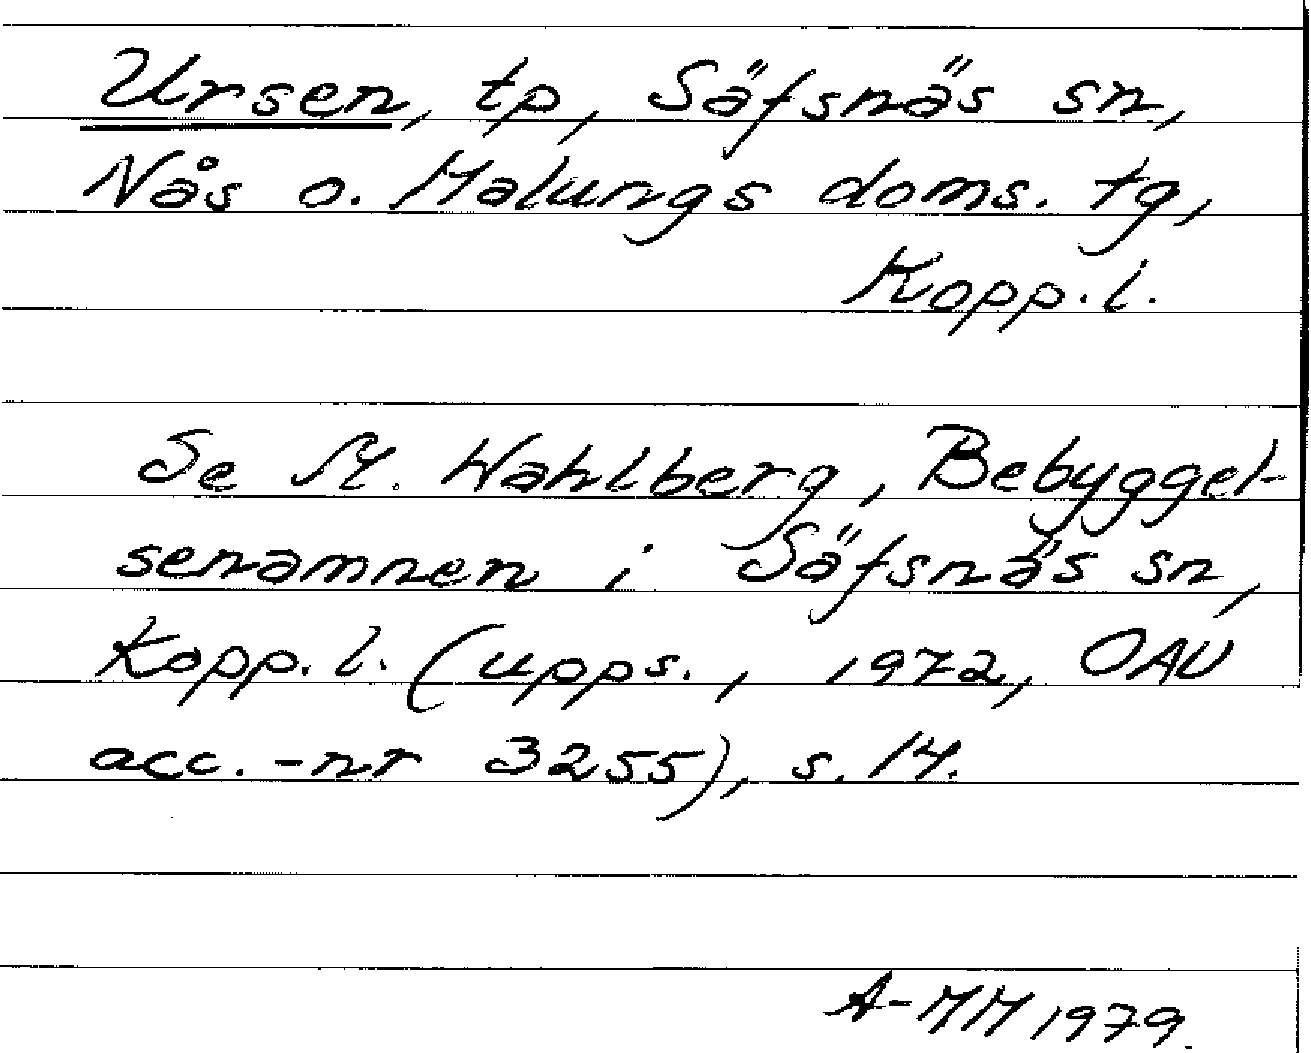 Ursen, tp, Säfsnäs sn,
Nås o. Malungs doms. tg,
Kopp. l.
Se M. Wahlberg, Bebyggel-
senamnen i Säfsnäs sn,
Kopp. l. (upps., 1972, OAU
acc.-nr 3255), s. 14.
A-MM 1979.